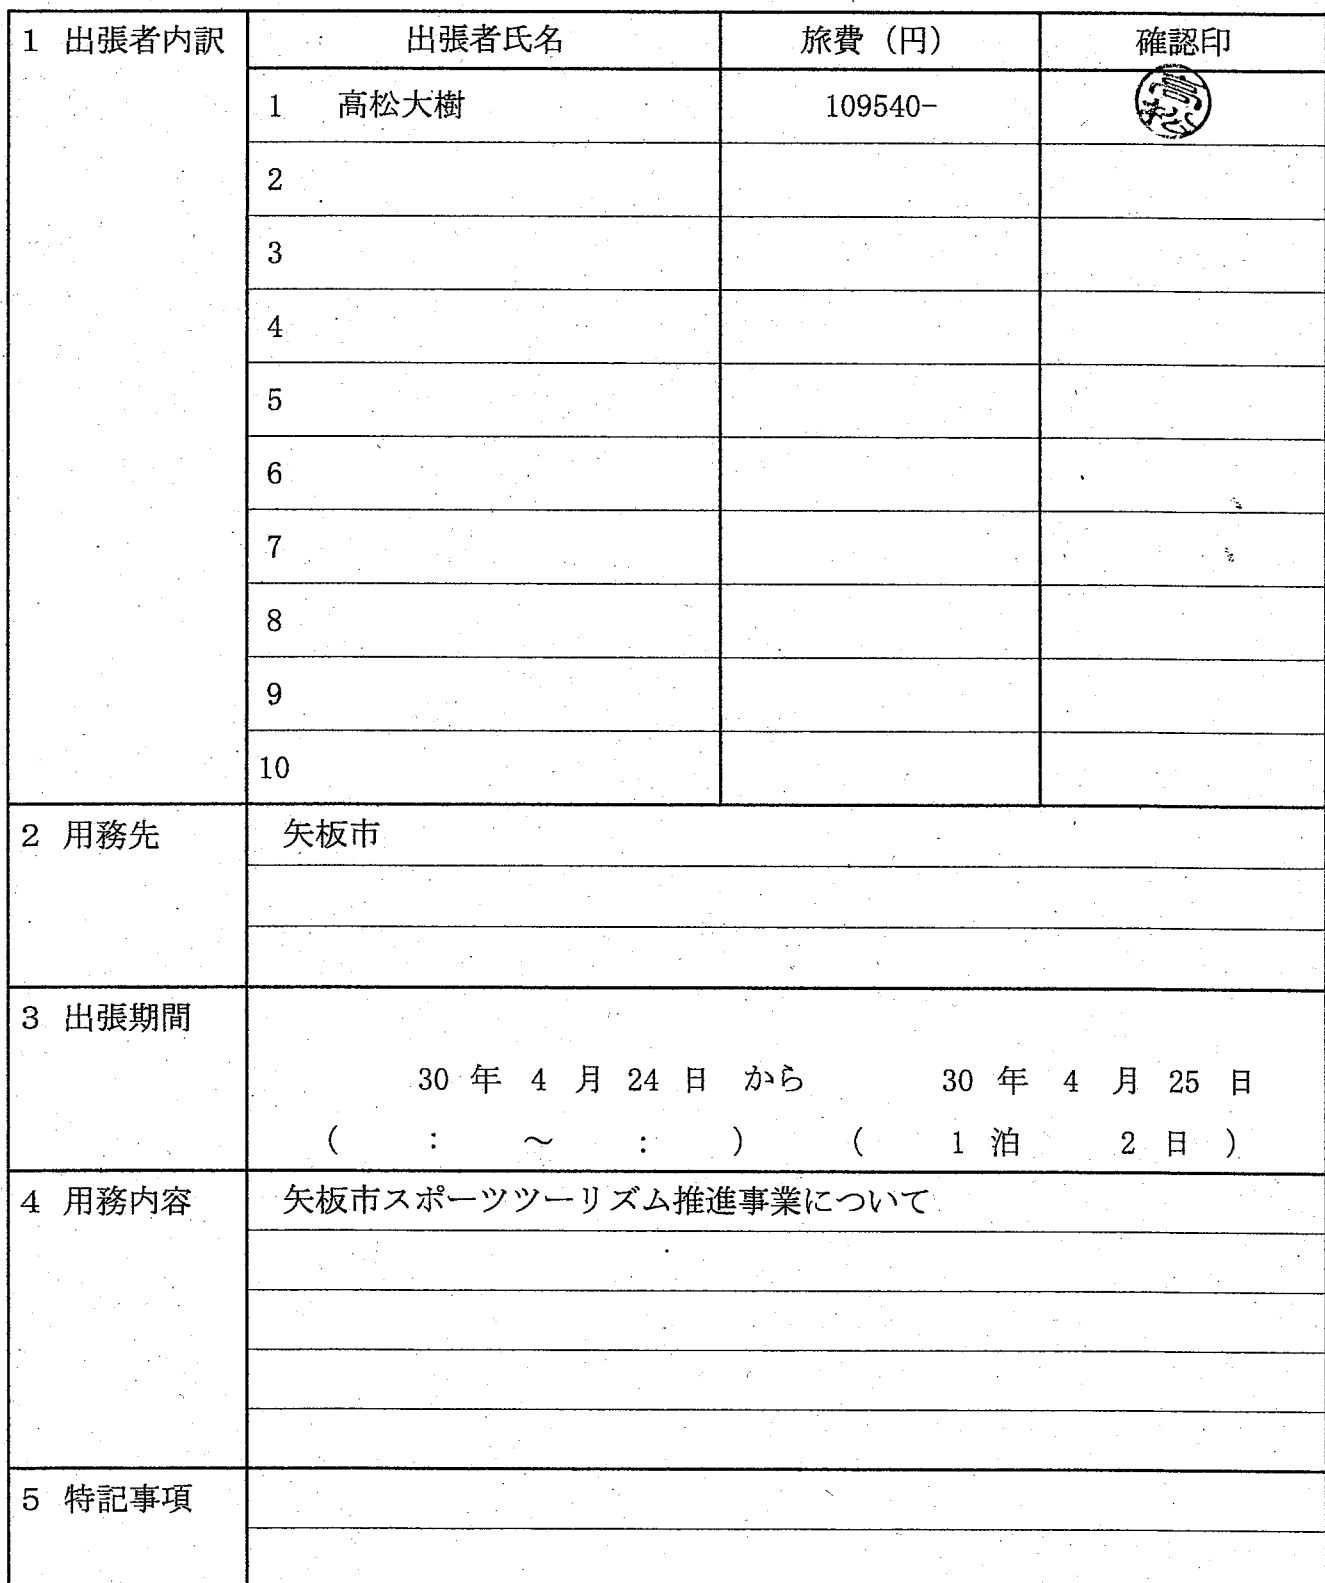 1 出張者内訳 出張者氏名 旅費（円） 確認印
1 高松大樹 109540- 高松
2
3
4
5
6
7
8
9
10
2 用務先 矢板市
3 出張期間
30 年 4 月 24 日 から 30 年 4 月 25 日
( : ～ : ) ( 1 泊 2 日 )
4 用務内容 矢板市スポーツツーリズム推進事業について
5 特記事項